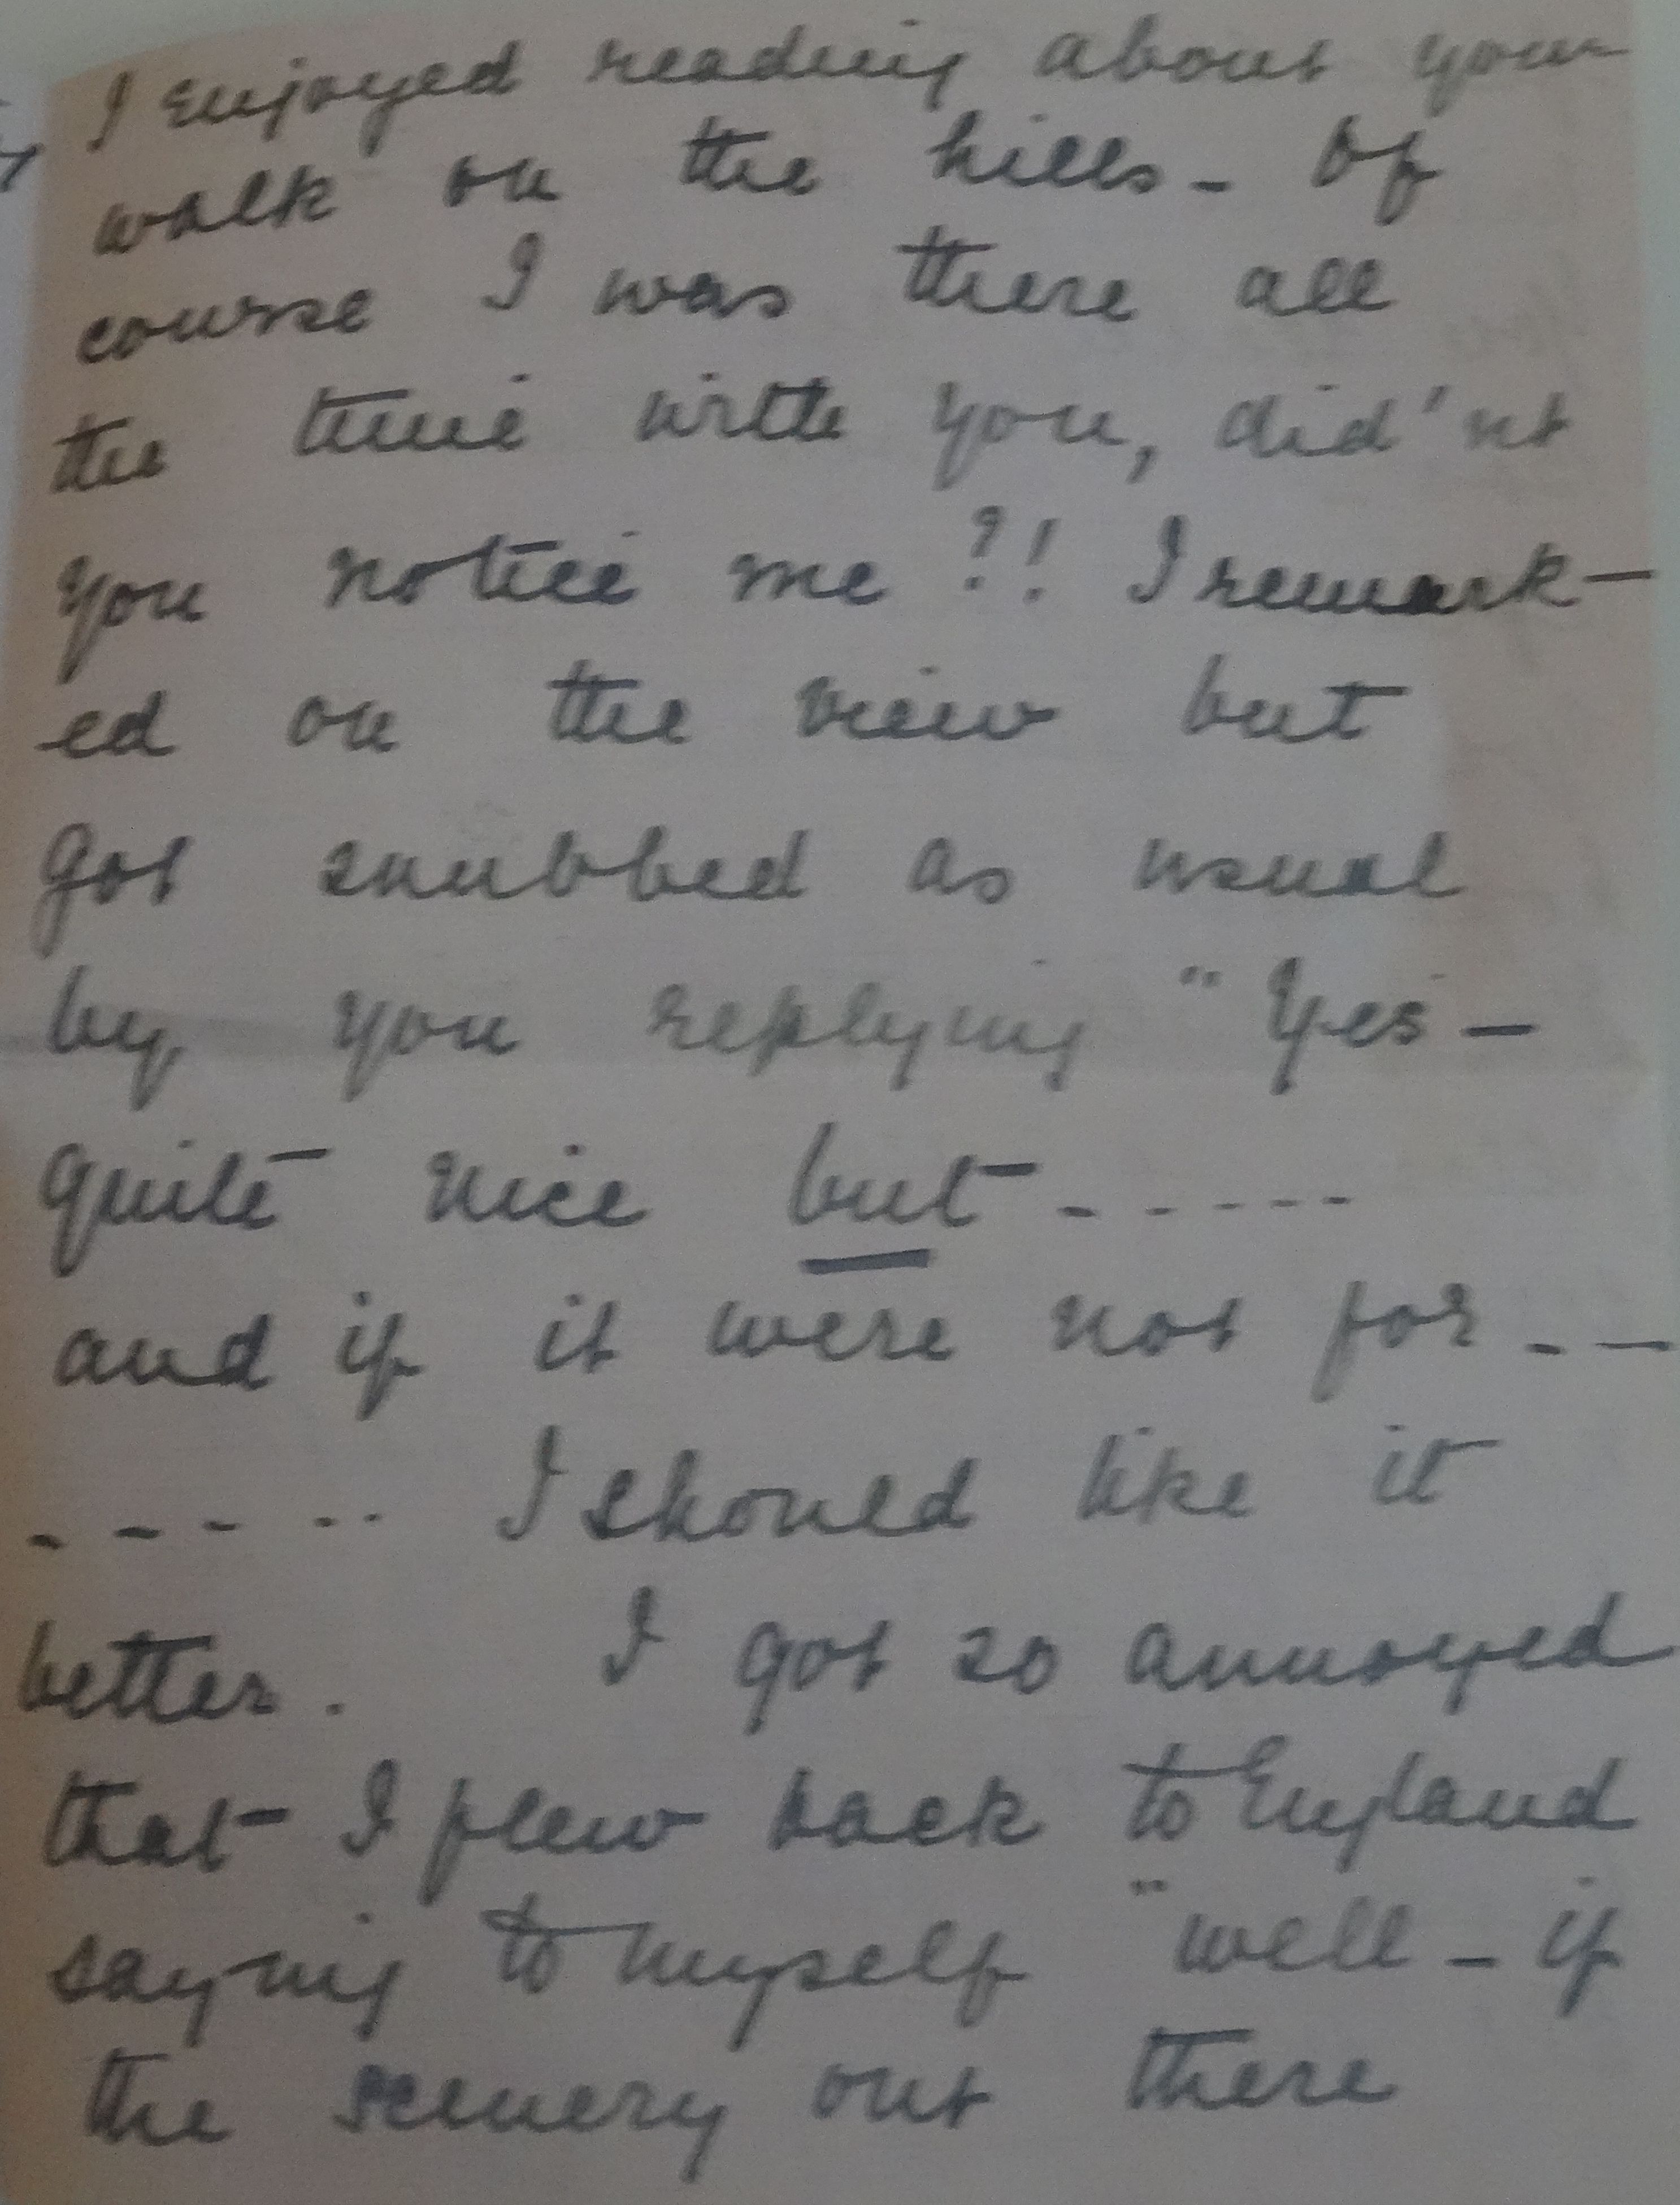 I enjoyed reading about your
walk on the hills - Of
course I was there all
the time with you, did'nt
you notice me ?! I remark-
ed on the view but
got snubbed as usual
by you replying "Yes -
quite nice but - - - - - -
and if it were not for - -
- - - - - I should like it
better. I got so annoyed
that I flew back to England
saying to myself "well - if
the scenery out there